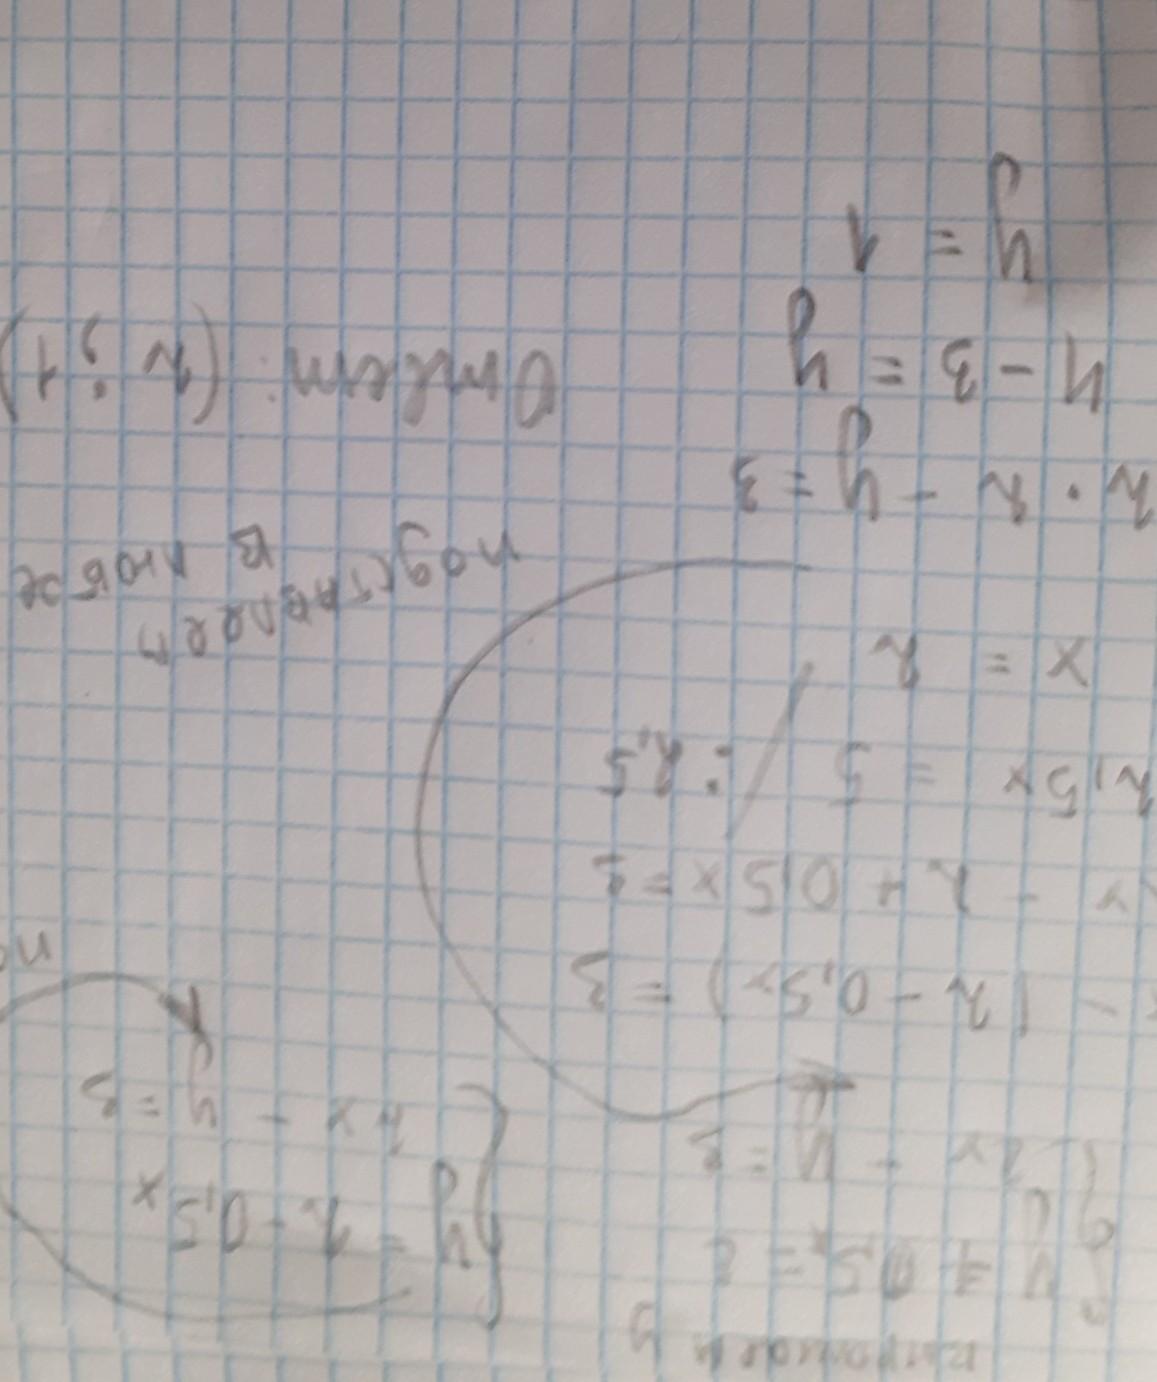 выразили y
y + 0,5x = 2
2x - y = 3
y = 2 - 0,5x
2x - y = 3
- (2 - 0,5x) = 3
- 2 + 0,5x = 3
2,5x = 5 / : 2,5
x = 2
подставляем
в любое
2 · 2 - y = 3
4 - 3 = y
y = 1
Ответ: (2 ; 1)